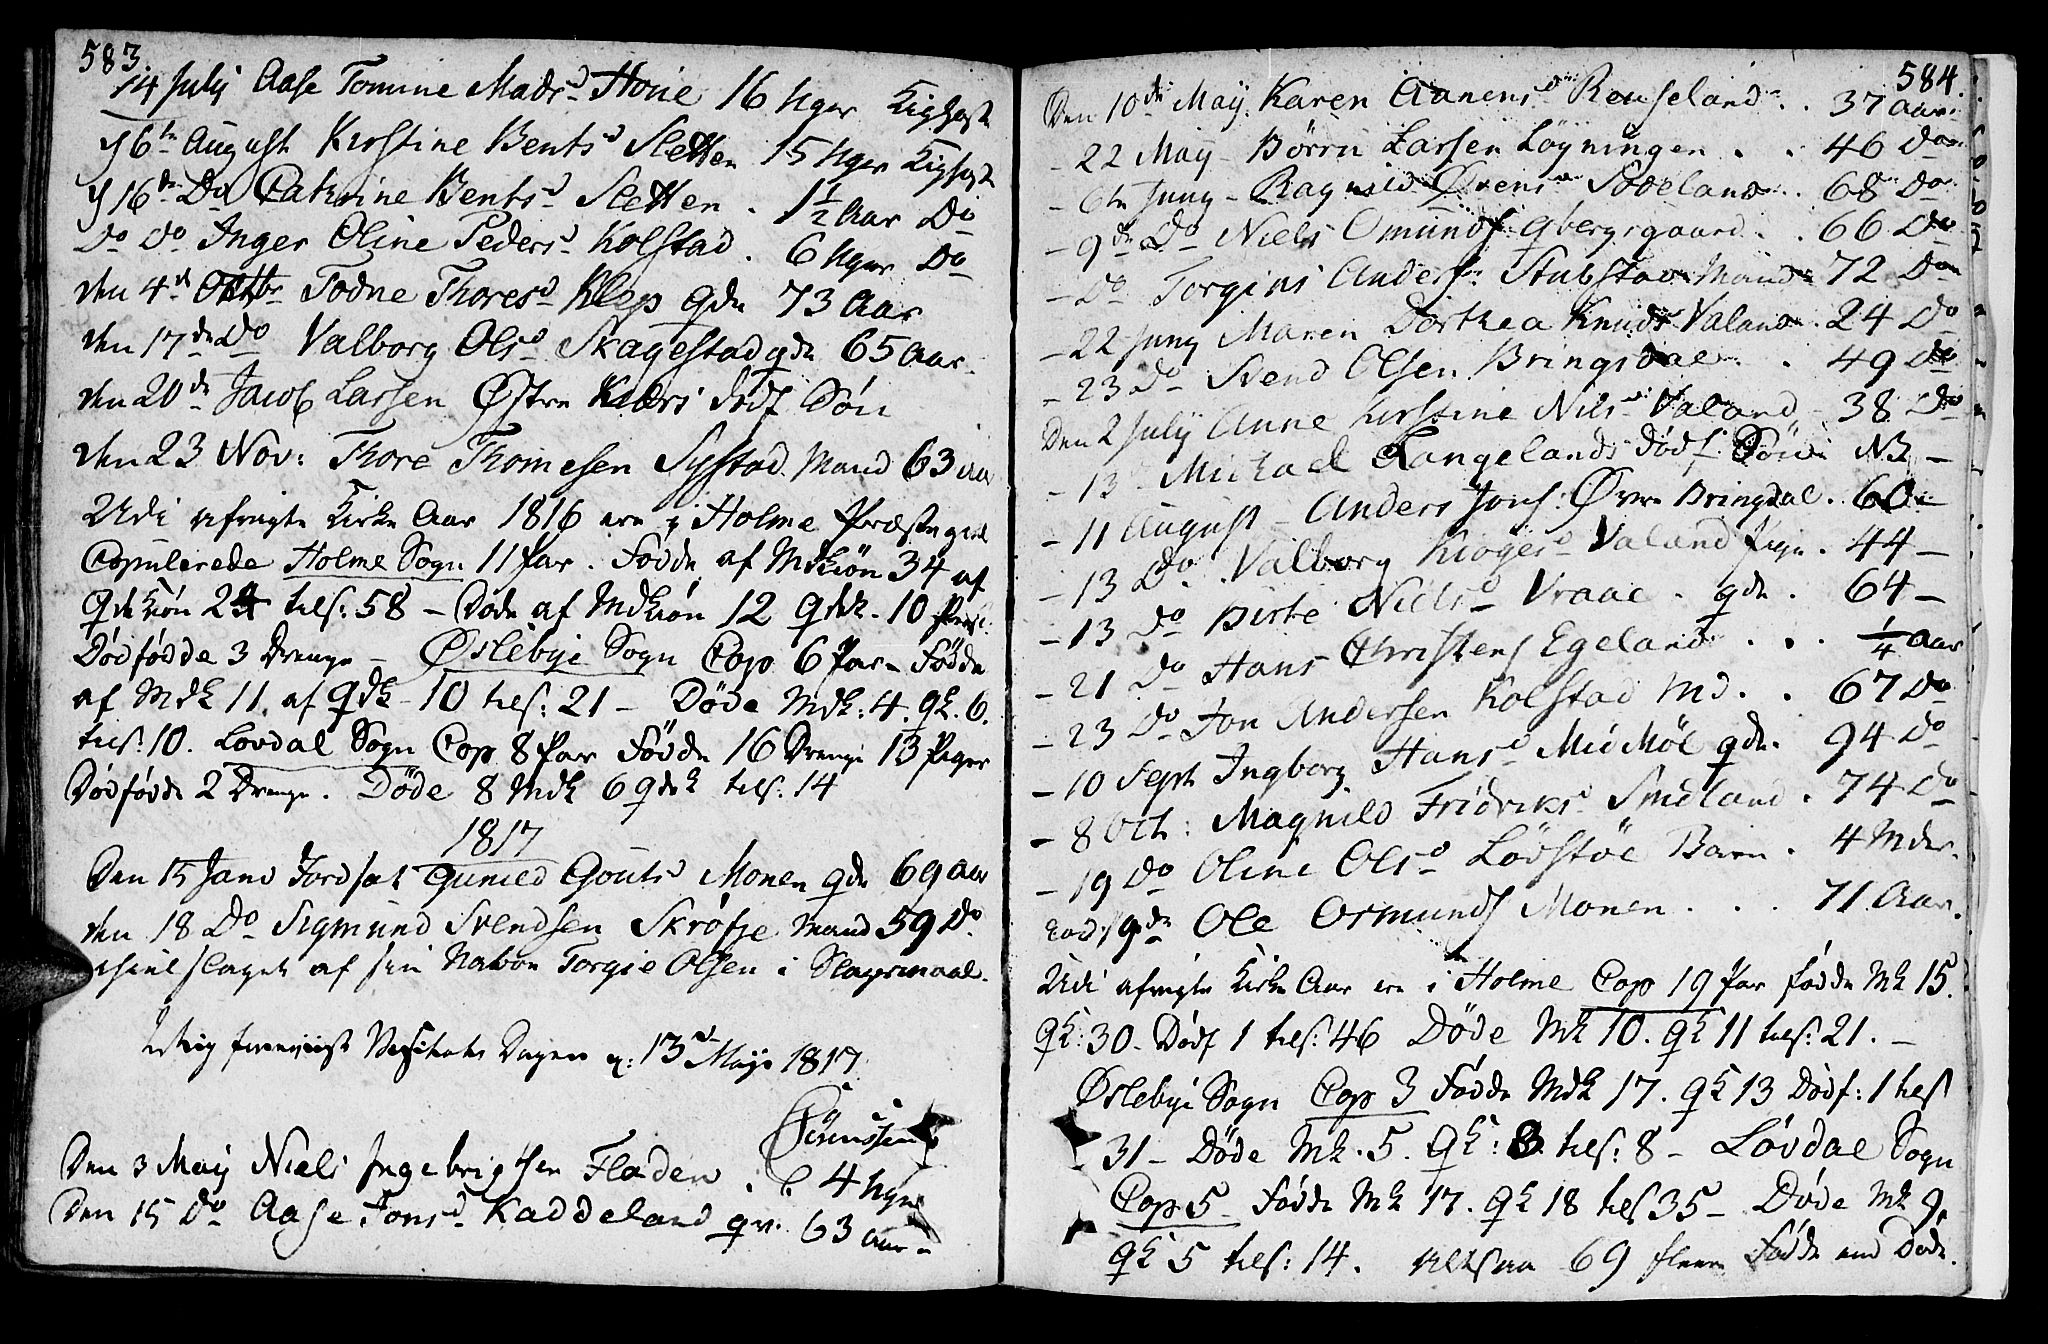 583.
14 Julij Aase Tomine Madsd Hoie 16 Uger Kighoste
d 6te August Kirstine Bentsd Sletten 15 Uger Kighoste
d 16de Do Cathrine Bentsd Sletten . 1½ Aar Do
Do Do Inger Oline Pedersd Kolstad . 6 Uger Do
den 4de Octbr Todne Thoresd Klep qde 73 Aar
den 17de Do Valborg Olsd Skagestad qde 65 Aar
den 20de Jacob Larsen Østre Kleri dødf Søn
den 23 Nov: Thore Thomesen Systad Mand 63 aar
Udi afvigte Kirke Aar 1816 ere i Holme Præstegield
Copulerede Holme Sogn 11 Par . Fødde af Mdkiøn 34 af
Qdekiøn 24 tils: 58 – Døde af Mdkiøn 12 Qdek. 10
Dødfødde 3 Drenge – Øslebye Sogn Cop 6 Par – Fødde
af Mdk 11. af Qdk – 10 tils: 21 – Døde Mdk: 4. Qk. 6.
tils: 10. Lovdal Sogn Cop 8 Par Fødde 16 Drenge 13 Piger
Dødfødde 2 Drenge . Døde 8 Mdk 6 Qdek tils. 14
1817
Den 15 Janv Jordsat Gunild Goutsd Monen qde 69 Aar
den 18 Do Sigmund Svendsen Skrøfje Mand 59 Do
ihielslaget af sin Naboe Torgie Olsen i Slagsmaal.
Visitats Dagen d: 13de Maji 1817
Sørenssen
Den 3 May Niels Ingebrigtsen Fladen . . 4 Uger
Den 15 Do Aase Jonsd Kaddeland qv: 63 aar
584.
Den 10de May Karen Aanensd Reuseland . . 37 aar
– 22 May – Børru Larsen Løyningen . . 46 Do
– 6te Juny – Ragnild Øvensd Sodeland . 68 Do
– 9de Do Niels Omunds Øbergsgaard . . 66 Do
– Do Torgius Anders: Stubstad Mand 72 Do
– 22 Juny Maren Dorthea Knudsd Valand . 24 Do
– 23 Do Svend Olsen Bringsdal . . 49 Do
Den 2 July Anne Kirstine Nilsd Valand – 38 Do
– 13 – Michael Langelands dødf: Søn NB –
– 11 August – Anders Jons: Øvre Bringdal . 60 –
– 13 Do Valborg Kiøgesd Valand Pige . 44 –
– 13 Do Birte Nielsd Vraae . qde . 64 –
– 21 Do Hans Christens Egeland . . . ¼ Aar
– 23 Do Jon Andersen Kolstad Md . . 67 Do
– 10 Sept Ingborg Hansd Mid Møl qde . 94 Do
– 8 Oct: Magnild Fridriksd Smeland . 74 Do
– 19 Do Oline Olsd Løvstøe Barn . 4 Mder.
Eod. Ole Osmunds Monen . . . 71 Aar.
Udi afvigte Kirke Aar ere i Holme Cop 19 Par fødde Mk 15.
Qk: 30 – Dødf 1 tils: 46 Døde Mk 10. Qk 11 tils: 21. –
Øslebye Sogn Cop 3 Fødde Mdk 17. Qk 13 Dødf: 1 tils
31 – Døde Mk. 5. Qk: 3. tils: 8 – Løvdal Sogn
Cop 5 – Fødde Mk 17. Qk 18 tils 35 – Døde Mk 9.
Qk 5 tils: 14. altsaa 69 fleere Fødde end Døde.